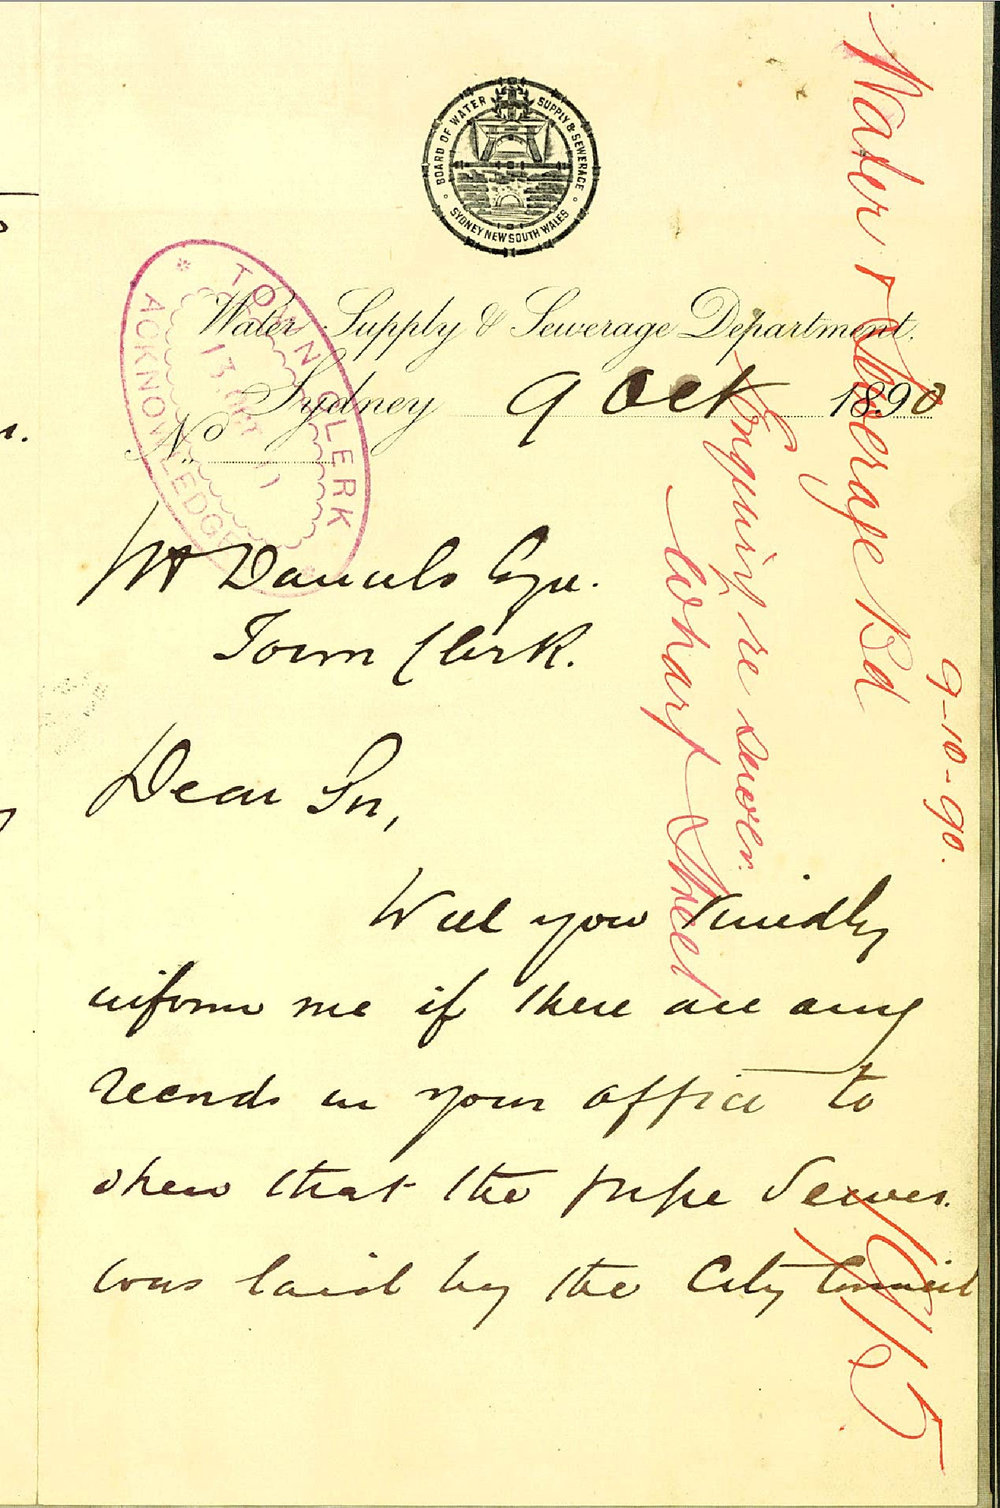 BOARD OF WATER SUPPLY & SEWERAGE
SYDNEY NEW SOUTH WALES
Water Supply & Sewerage Department.
Sydney 9 Oct 1890
No
TOWN CLERK
13 OCT 90
ACKNOWLEDGED
Daniels Esqre.
Town Clerk.
Dear Sir,
Will you kindly
inform me if there are any
records in your office to
shew that the pipe Sewer
was laid by the City Council
Water & Sewerage Bd
9-10-90.
Enquiry re sewer
Wharf Street